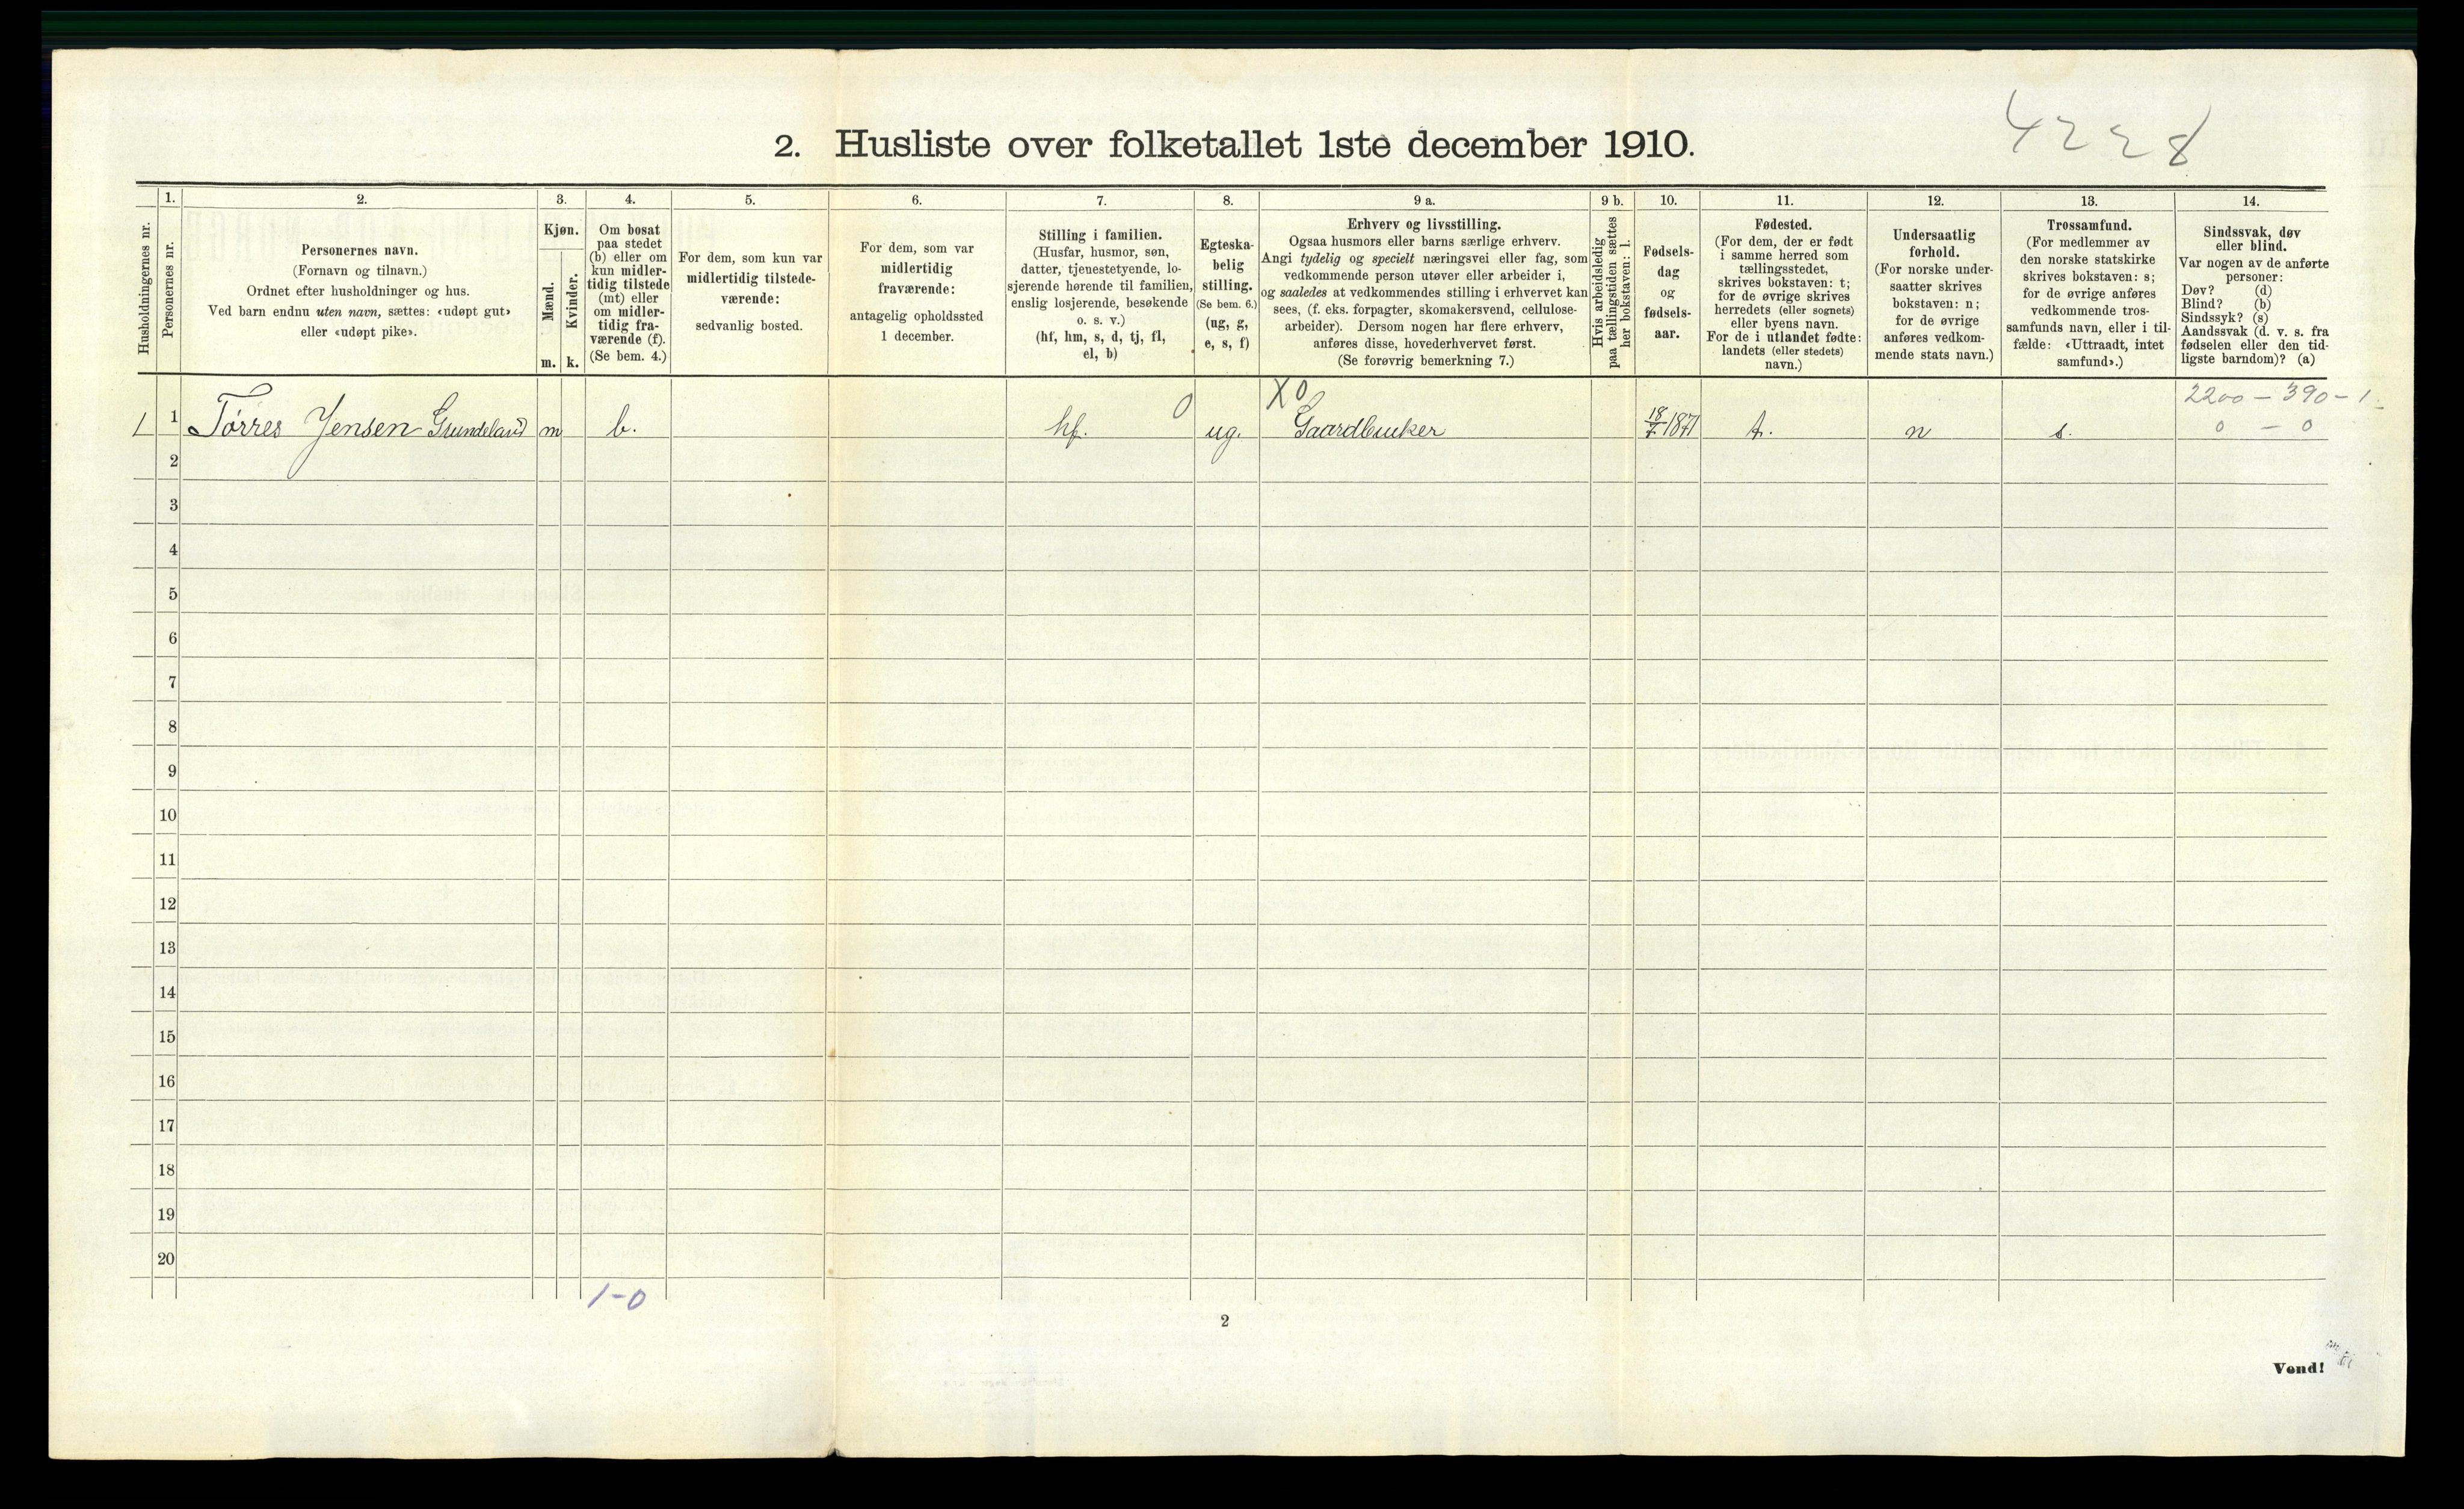 4228
2. Husliste over folketallet 1ste december 1910.
Husholdningernes nr.
1.
Personernes nr.
2.
Personernes navn.
(Fornavn og tilnavn.)
Ordnet efter husholdninger og hus.
Ved barn endnu uten navn, sættes: «udøpt gut»
eller «udøpt pike».
3.
Kjøn.
Mænd.
Kvinder.
m. k.
4.
Om bosat
paa stedet
(b) eller om
kun midler-
tidig tilstede
(mt) eller
om midler-
tidig fra-
værende (f).
(Se bem. 4.)
5.
For dem, som kun var
midlertidig tilstede-
værende:
sedvanlig bosted.
6.
For dem, som var
midlertidig
fraværende:
antagelig opholdssted
1 december.
7.
Stilling i familien.
(Husfar, husmor, søn,
datter, tjenestetyende, lo-
sjerende hørende til familien,
enslig losjerende, besøkende
o. s. v.)
(hf, hm, s, d, tj, fl,
el, b)
8.
Egteska-
belig
stilling.
(Se bem. 6.)
(ug, g,
e, s, f)
9 a.
Erhverv og livsstilling.
Ogsaa husmors eller barns særlige erhverv.
Angi tydelig og specielt næringsvei eller fag, som
vedkommende person utøver eller arbeider i,
og saaledes at vedkommendes stilling i erhvervet kan
sees, (f. eks. forpagter, skomakersvend, cellulose-
arbeider). Dersom nogen har flere erhverv,
anføres disse, hovederhvervet først.
(Se forøvrig bemerkning 7.)
9 b.
Hvis arbeidsledig
paa tællingstiden sættes
her bokstaven: l.
10.
Fødsels-
dag
og
fødsels-
aar.
11.
Fødested.
(For dem, der er født
i samme herred som
tællingsstedet,
skrives bokstaven: t;
for de øvrige skrives
herredets (eller sognets)
eller byens navn.
For de i utlandet fødte:
landets (eller stedets)
navn.)
12.
Undersaatlig
forhold.
(For norske under-
saatter skrives
bokstaven: n;
for de øvrige
anføres vedkom-
mende stats navn.)
13.
Trossamfund.
(For medlemmer av
den norske statskirke
skrives bokstaven: s;
for de øvrige anføres
vedkommende tros-
samfunds navn, eller i til-
fælde: «Uttraadt, intet
samfund».)
14.
Sindssvak, døv
eller blind.
Var nogen av de anførte
personer:
Døv? (d)
Blind? (b)
Sindssyk? (s)
Aandssvak (d. v. s. fra
fødselen eller den tid-
ligste barndom)? (a)
X 0
2200 - 390 - 1
1 1 Tørres Jensen Grundeland m b. hf. 0 ug. Gaardbruker 18/7 1871 t. n s. 0 - 0
2
3
4
5
6
7
8
9
10
11
12
13
14
15
16
17
18
19
20
1-0
2
Vend!